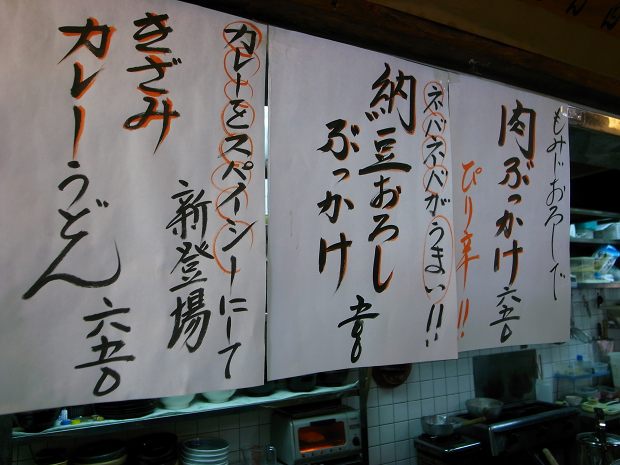 もみじおろしで
ぴり辛!!
肉ぶっかけ
六五〇
ネバネバがうまい!!
納豆おろし
ぶっかけ
五五〇
カレーをスパイシーにして
新登場
きざみ
カレーうどん
六五〇